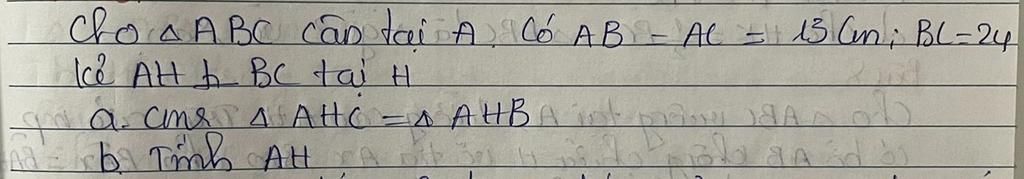 Cho Δ ABC cân tại A. Có AB = AC = 13 Cm; BC = 24
Kẻ AH ⊥ BC tại H
a. CMR Δ AHC = Δ AHB
b. Tính AH